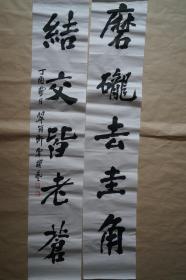 磨礲去圭角
結交皆老蒼